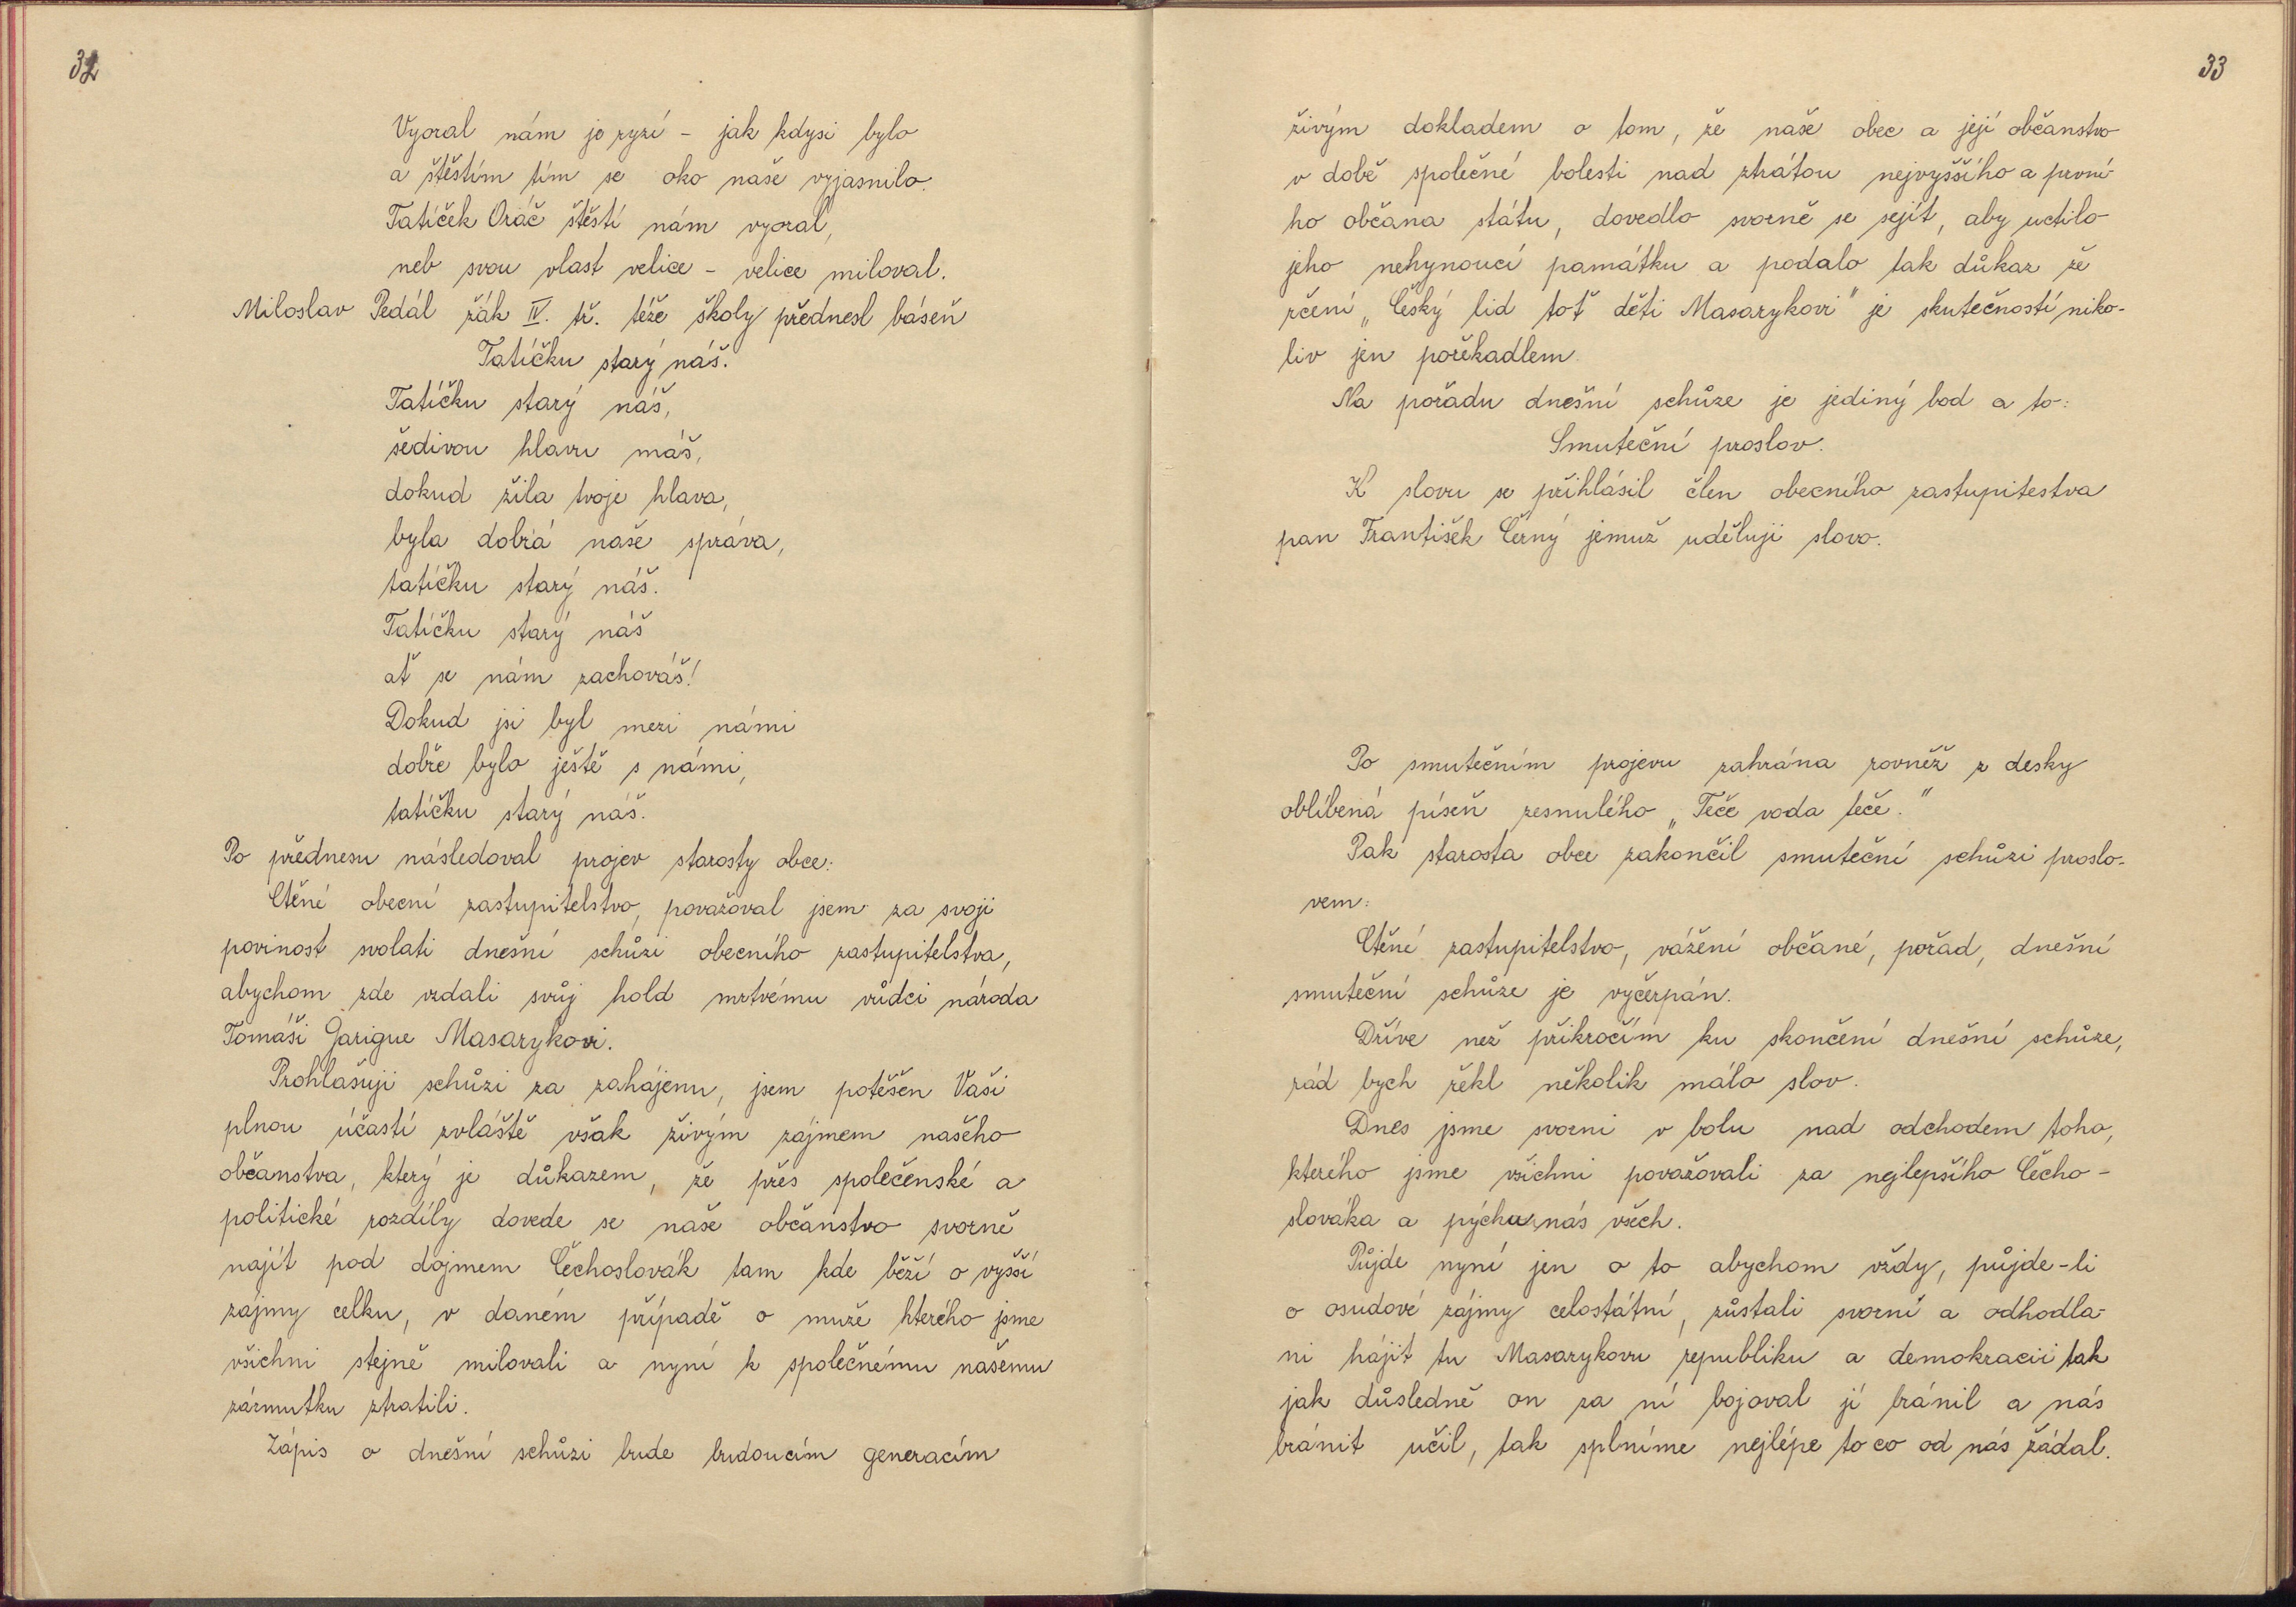 32
Vyoral nám jo ryzí - jak kdysi bylo
a štěstím tím se oko naše vyjasnilo.
Tatíček Oráč štěstí nám vyoral,
neb svou vlast velice - velice miloval.
Miloslav Pedál žák IV. tř. téže školy přednesl báseň
Tatíčku starý náš.
Tatíčku starý náš,
šedivou hlavu máš,
dokud žila tvoje hlava,
byla dobrá naše správa,
tatíčku starý náš.
Tatíčku starý náš
ať se nám zachováš!
Dokud jsi byl mezi námi
dobře bylo ještě s námi,
tatíčku starý náš.
Po přednesu následoval projev starosty obce:
Ctěné obecní zastupitelstvo, považoval jsem za svoji
povinost svolati dnešní schůzi obecního zastupitelstva,
abychom zde vzdali svůj hold mrtvému vůdci národa
Tomáši Garigue Masarykovi.
Prohlašuji schůzi za zahájenu, jsem potěšen Vaší
plnou účastí zvláště však živým zájmem našeho
občanstva, který je důkazem, že přes společenské a
politické rozdíly dovede se naše občanstvo svorně
najít pod dojmem Čechoslovák tam kde běží o vyšší
zájmy celku, v daném případě o muže kterého jsme
všichni stejně milovali a nyní k společnému našemu
zármutku ztratili.
Zápis o dnešní schůzi bude budoucím generacím
33
živým dokladem o tom, že naše obec a její občanstvo
v době společné bolesti nad ztrátou nejvyššího a první-
ho občana státu, dovedlo svorně se sejít, aby uctilo
jeho nehynoucí památku a podalo tak důkaz že
rčení „Český lid toť děti Masarykovi" je skutečností niko-
liv jen pořekadlem.
Na pořadu dnešní schůze je jediný bod a to:
Smuteční proslov.
K slovu se přihlásil člen obecního zastupitestva
pan František Černý jemuž uděluji slovo.
Po smutečním projevu zahrána rovněž z desky
oblíbená píseň zesnulého „Teče voda teče."
Pak starosta obce zakončil smuteční schůzi proslo-
vem:
Ctěné zastupitelstvo, vážení občané, pořad, dnešní
smuteční schůze je vyčerpán.
Dříve než přikročím ku skončení dnešní schůze,
rád bych řekl několik málo slov.
Dnes jsme svorni v bolu nad odchodem toho,
kterého jsme všichni považovali za nejlepšího Čecho-
slováka a pýchu nás všech.
Půjde nyní jen o to abychom vždy, půjde-li
o osudové zájmy celostátní, zůstali svorní a odhodla-
ni hájit tu Masarykovu republiku a demokracii tak
jak důsledně on za ní bojoval jí bránil a nás
bránit učil, tak splníme nejlépe to co od nás žádal.